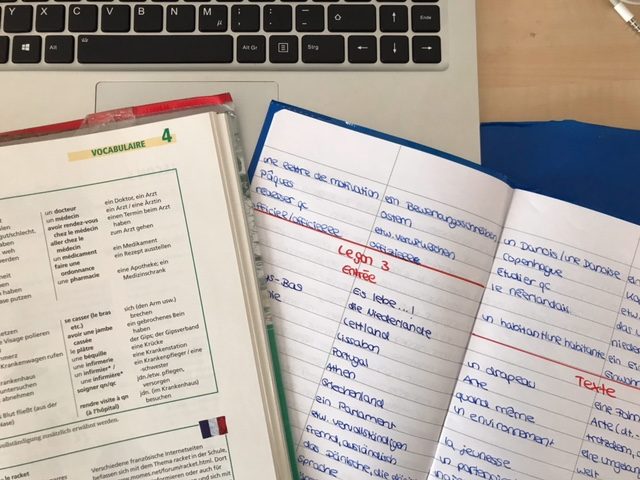 X C V B N M µ ; : - Ende
Alt Alt Gr Strg
VOCABULAIRE 4
un docteur ein Doktor, ein Arzt
un médecin ein Arzt / eine Ärztin
avoir rendez-vous einen Termin beim Arzt
chez le médecin haben
aller chez le zum Arzt gehen
médecin
un médicament ein Medikament
faire une ein Rezept ausstellen
ordonnance
une pharmacie eine Apotheke; ein
Medizinschrank
se casser (le bras sich (den Arm usw.)
etc.) brechen
avoir une jambe ein gebrochenes Bein
cassée haben
le plâtre der Gips; der Gipsverband
une béquille eine Krücke
une infirmerie eine Krankenstation
un infirmier* / ein Krankenpfleger / eine
une infirmière* -schwester
soigner qn/qc jdn./etw. pflegen,
versorgen,
rendre visite à qn jdn. (im Krankenhaus)
(à l'hôpital) besuchen
Visage polieren
Krankenwagen rufen
krankenhaus
untersuchen
abnehmen
Blut fließt (aus der
selbständigung zusätzlich erwähnt werden.
le racket
Verschiedene französische Internetseiten
befassen sich mit dem Thema racket in der Schule,
www.momes.net/forum/racket.html. Dort
une lettre de motivation ein Bewerbungsschreiben
Pâques Ostern
officier/officielle offizielle
Leçon 3
Entrée
Es lebe...!
-Bas die Niederlande
Lettland
Lissabon
Portugal
Athen
Griechenland
ein Parlament
etw. vervollständigen
fremd, ausländisch
das Dänische, die
Sprache
un Danois/une Danoise
Copenhague
étudier qc
le néerlandais
un habitant/une habitante ein
Texte
un drapeau eine
Arte Arte (dt.
quand même trotzdem,
un environnement eine
la jeunesse welt